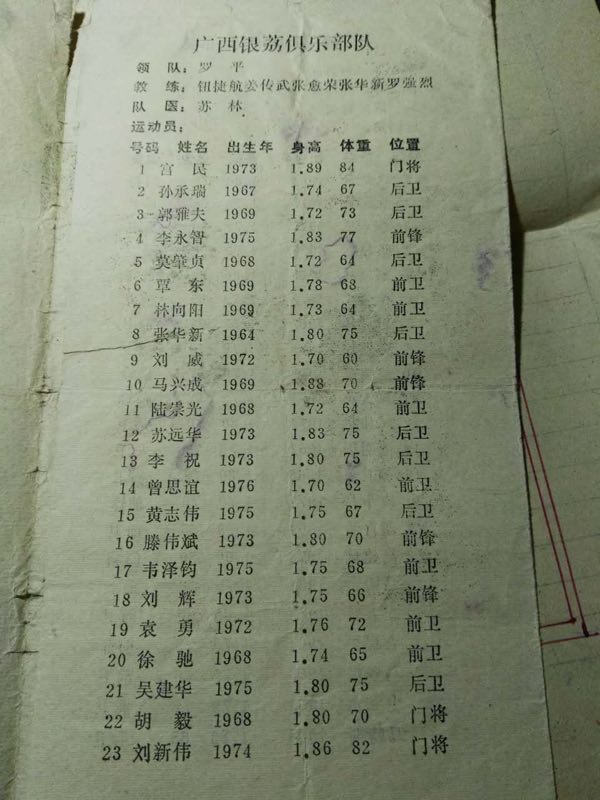 广西银荔俱乐部队
领 队：罗 平
教 练：钮捷航姜传武张愈荣张华新罗强烈
队 医：苏 林
运动员：
号码 姓名 出生年 身高 体重 位置
1 宫 民 1973 1.89 84 门将
2 孙承瑞 1967 1.74 67 后卫
3 郭雅夫 1969 1.72 73 后卫
4 李永智 1975 1.83 77 前锋
5 莫肇贞 1968 1.72 64 后卫
6 覃 东 1969 1.78 68 前卫
7 林向阳 1969 1.73 64 前卫
8 张华新 1964 1.80 75 后卫
9 刘 威 1972 1.70 60 前锋
10 马兴成 1969 1.88 70 前锋
11 陆崇光 1968 1.72 64 前卫
12 苏远华 1973 1.83 75 后卫
13 李 祝 1973 1.80 75 后卫
14 曾思谊 1976 1.70 62 前卫
15 黄志伟 1975 1.75 67 后卫
16 滕伟斌 1973 1.80 70 前锋
17 韦泽钧 1975 1.75 68 前卫
18 刘 辉 1973 1.75 66 前锋
19 袁 勇 1972 1.76 72 前卫
20 徐 驰 1968 1.74 65 前卫
21 吴建华 1975 1.80 75 后卫
22 胡 毅 1968 1.80 70 门将
23 刘新伟 1974 1.86 82 门将